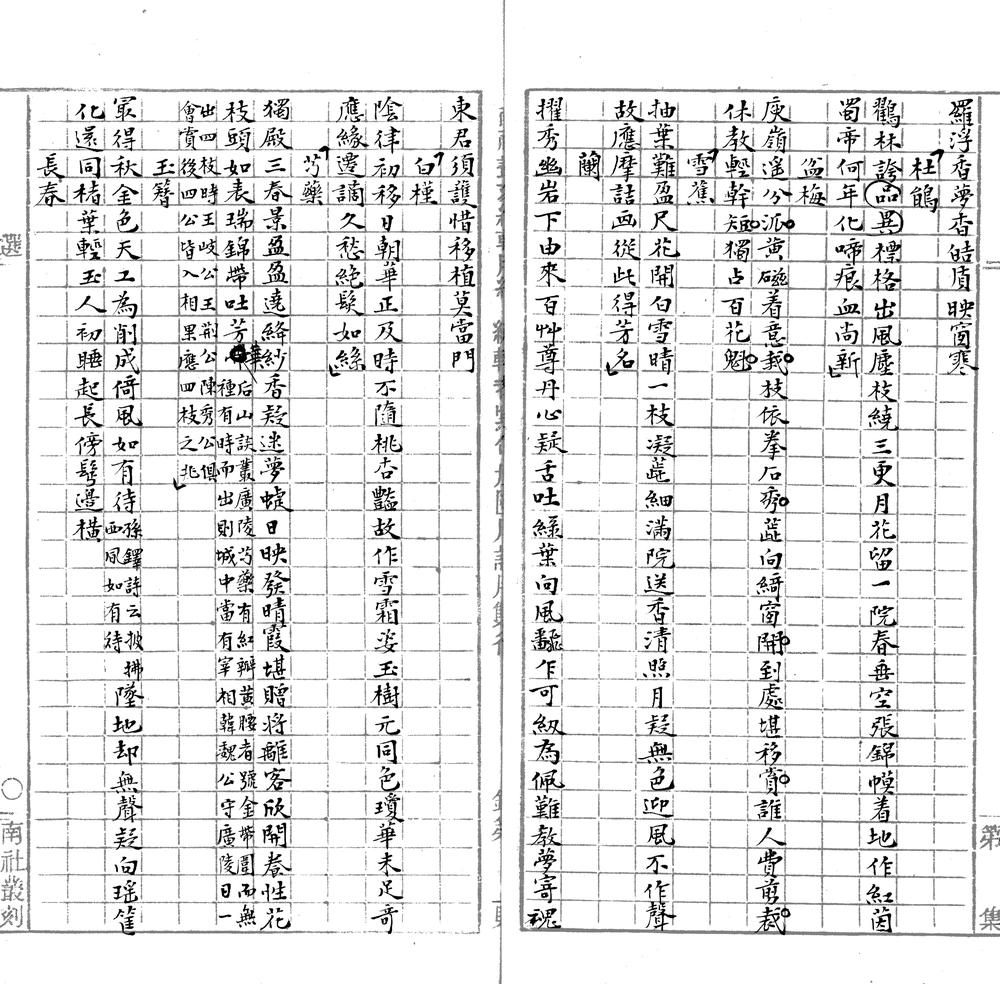 羅浮香夢杳皓質映窗寒
杜鵑
鸛林誇品異標格出風塵枝繞三更月花留一院春垂空張錦幙着地作紅茵
蜀帝何年化啼痕血尚新
盆梅
庾嶺遥分派黄磁着意栽枝依拳石秀蕋向綺窗開到處堪移賞誰人費剪裁
休教輕幹短獨占百花魁
雪蕉
抽葉難盈尺花開白雪晴一枝凝蕋細滿院送香清照月疑無色迎風不作聲
故應摩詰画從此得芳名
蘭
擢秀幽岩下由來百艸尊丹心疑舌吐綠葉向風翻乍可紉為佩難教夢寄魂
東君須護惜移植莫當門
白槿
陰律初移日朝華正及時不隨桃杏豔故作雪霜姿玉樹元同色瓊華未足奇
應緣遷謫久愁絶髮如絲
芍藥
獨殿三春景盈盈遶絳紗香疑迷夢蜨日映發晴霞堪贈將離客欣開養性花
枝頭如表瑞錦帶吐芳華后山談叢廣陵芍藥有紅瓣黄腰者號金帶圍而無
種有時而出則城中當有宰相韓魏公守廣陵日一
出四枝時王岐公王荆公陳秀公俱
會賞後四公皆入相果應四枝之兆
玉簪
冣得秋金色天工為削成倚風如有待孫鐸詩云披拂
西風如有待墜地却無聲疑向瑶篚
化還同楮葉輕玉人初睡起長傍鬂邊橫
長春
選
○
南社叢刻
第
集